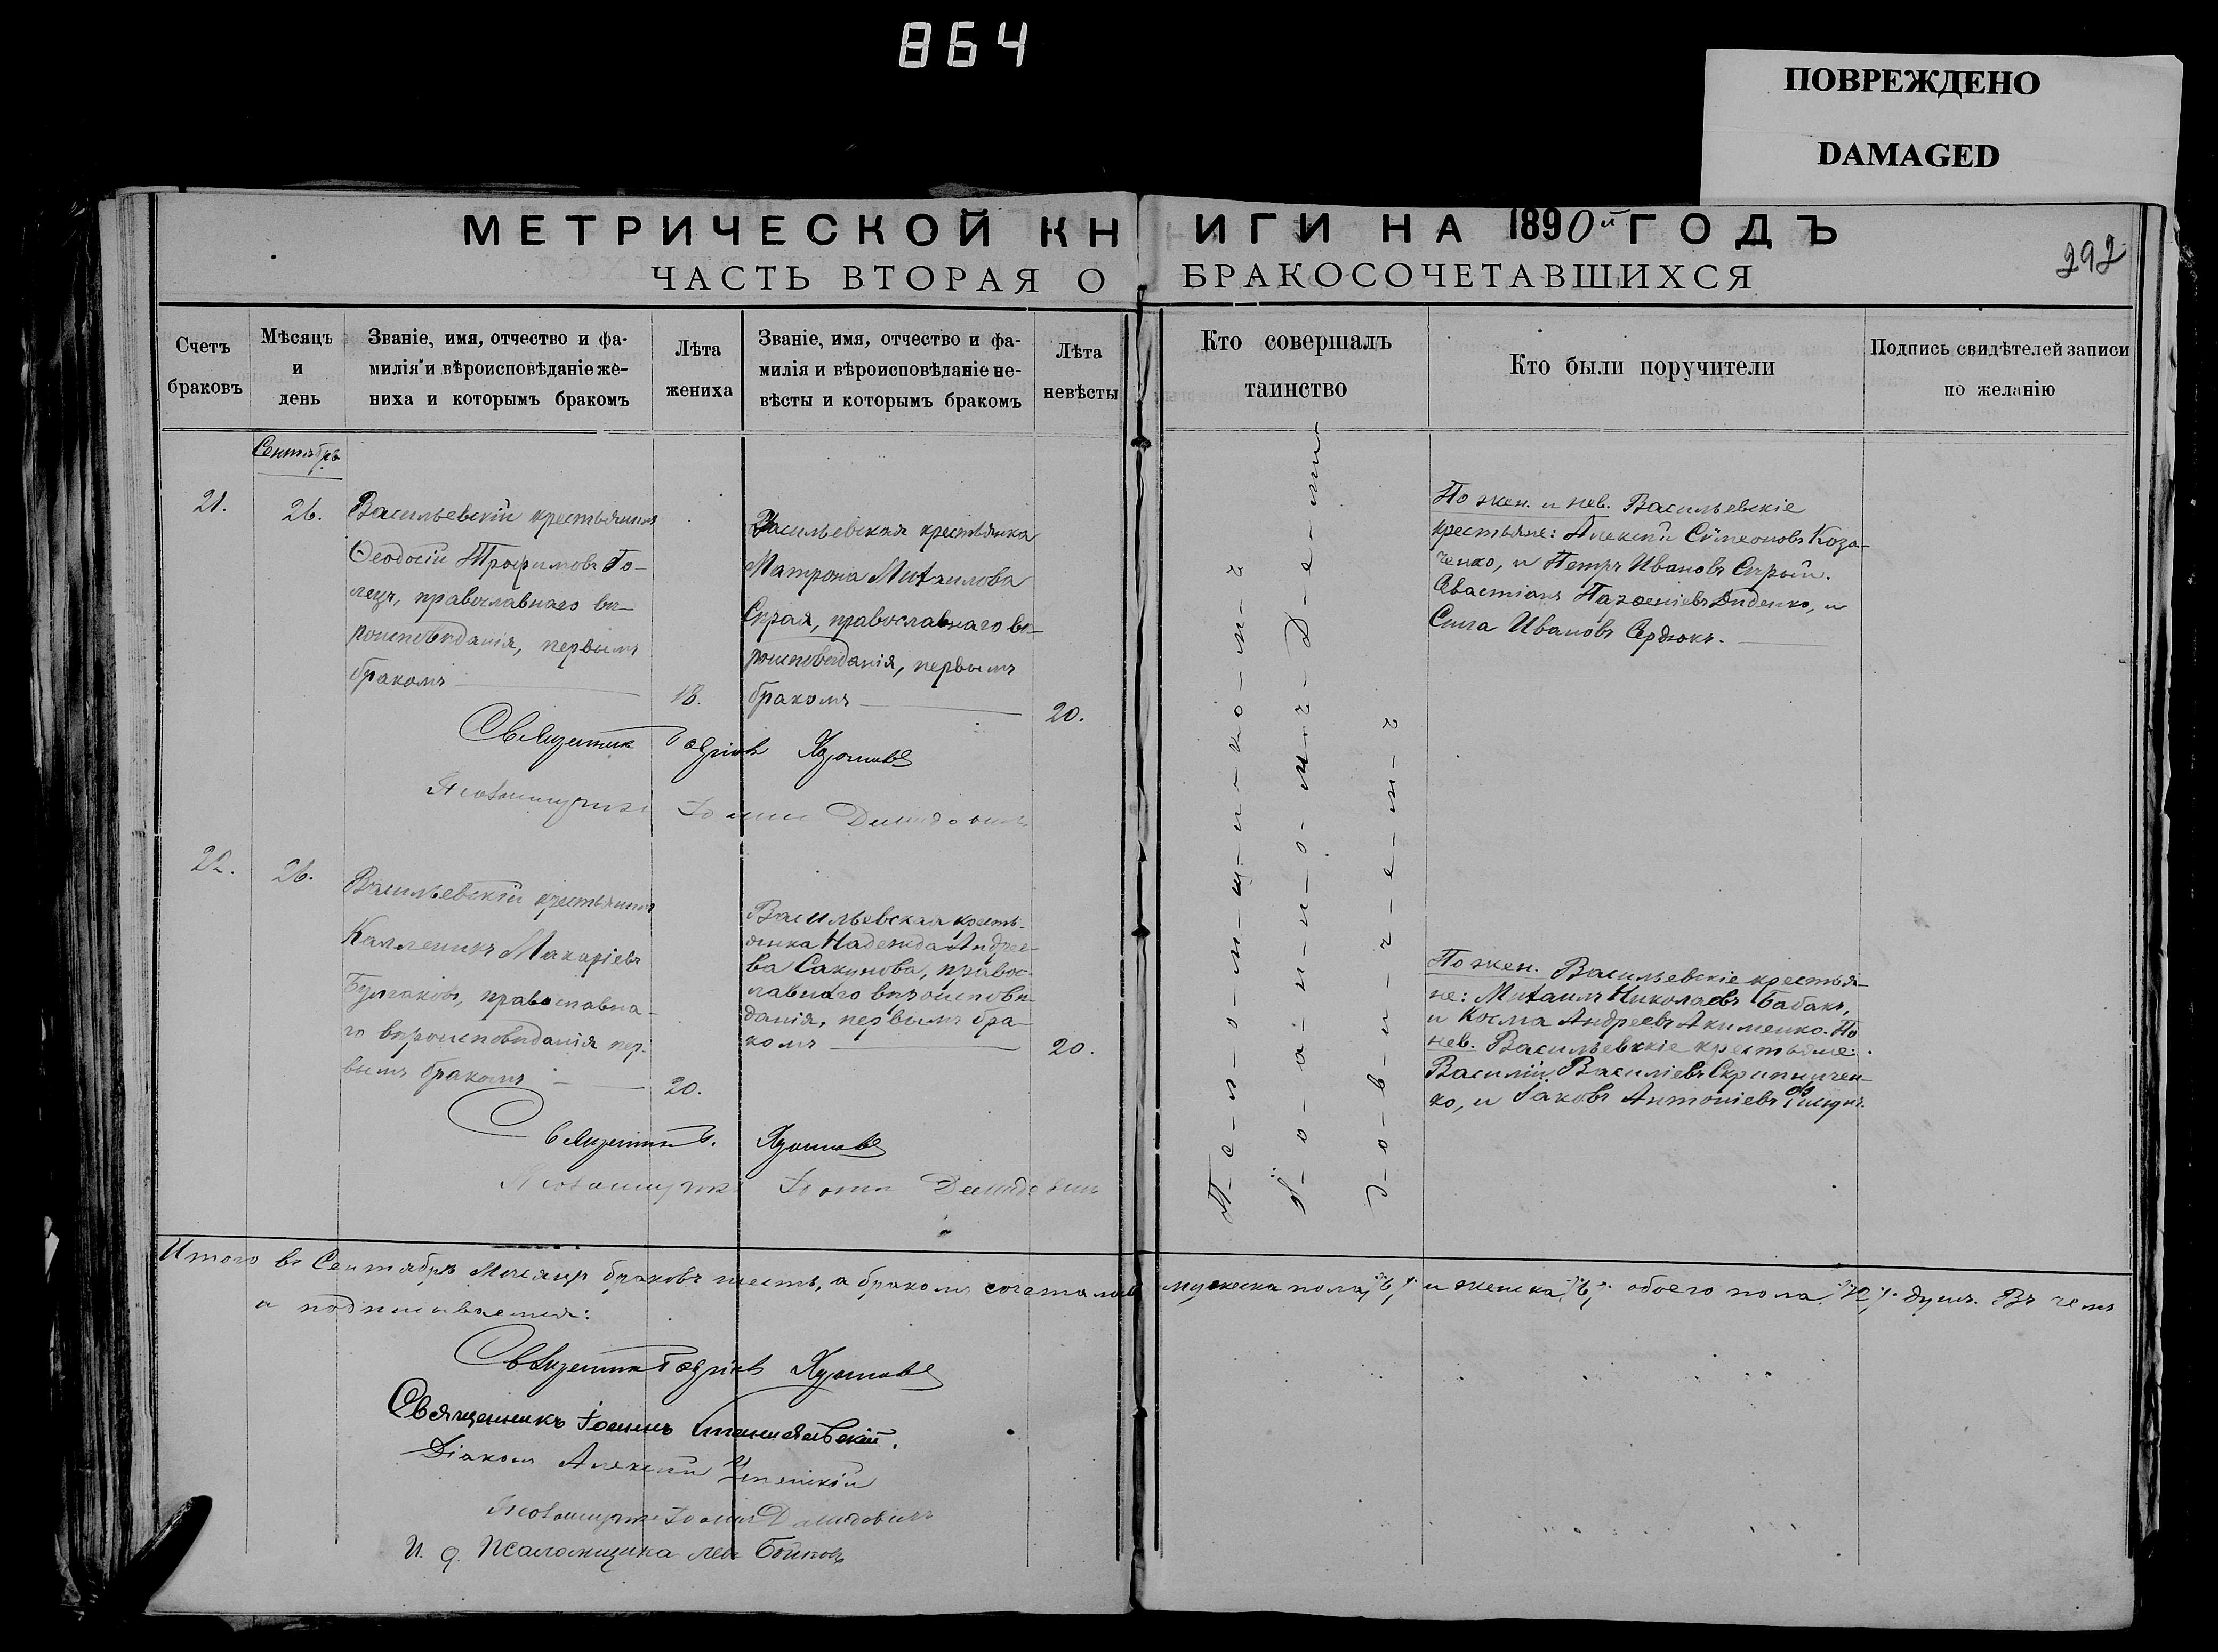 864
ПОВРЕЖДЕНО
DAMAGED
МЕТРИЧЕСКОЙ КНИГИ НА 1890й ГОДЪ
292
ЧАСТЬ ВТОРАЯ О БРАКОСОЧЕТАВШИХСЯ
Счетъ
браковъ
Мѣсяцъ
и
день
Званіе, имя, отчество и фа-
милія и вѣроисповѣданіе же-
ниха и которымъ бракомъ
Лѣта
жениха
Званіе, имя, отчество и фа-
милія и вѣроисповѣданіе не-
вѣсты и которымъ бракомъ
Лѣта
невѣсты
Кто совершалъ
таинство
Кто были поручители
Подпись свидѣтелей записи
по желанію
Сентябрь
21.
26.
Васильевскій крестьянинъ
Ѳеодосій Трофимовъ Го-
лецъ, православнаго вѣ-
роисповѣданія, первымъ
бракомъ
18.
Васильевская крестьянка
Матрона Михаилова
Сѣрая, православнаго вѣ-
роисповѣданія, первымъ
бракомъ
20.
По жен. и нев. Васильевскіе
крестьяне: Алексій Сѵмеоновъ Коза-
ченко, и Петръ Ивановъ Сѣрый.
Севастіанъ Парѳеніевъ Диденко, и
Сила Ивановъ Сердюкъ.
Священник Гавріилъ
Псаломщикъ Іоаннъ Демидовичъ
22.
26.
Васильевскій крестьянинъ
Каллиникъ Макаріевъ
Булгаковъ, православна-
го вѣроисповѣданія пер-
вымъ бракомъ
20.
Васильевская кресть-
янка Надежда Андрее-
ва Сакунова, правос-
лавнаго вѣроисповѣ-
данія, первымъ бра-
комъ
20.
По жен. Васильевскіе крестья-
не: Михаилъ Николаевъ Бабакъ,
и Косма Андреевъ Акименко. По
нев. Васильевскіе крестьяне:
Василій Василіевъ Скрипничен-
ко, и Іаковъ Антоніевъ
Священник Г.
Псаломщикъ Іоаннъ Демидовичъ
П-с-а-л-о-м-щ-и-к-о-м-ъ
І-о-а-н-н-о-м-ъ Д-е-м-и-
д-о-в-и-ч-е-м-ъ
Итого въ Сентябрѣ Мѣсяцѣ браковъ шесть, а бракомъ сочеталось мужеска пола „6„ и женска „6„ обоего пола „12„ душъ. Въ чемъ
и подписываемся:
Священник Гавріилъ
Священникъ Іоаннъ
Діаконъ Алексій
Псаломщикъ Іоаннъ Демидовичъ
И. д. Псаломщика Левъ Бойковъ